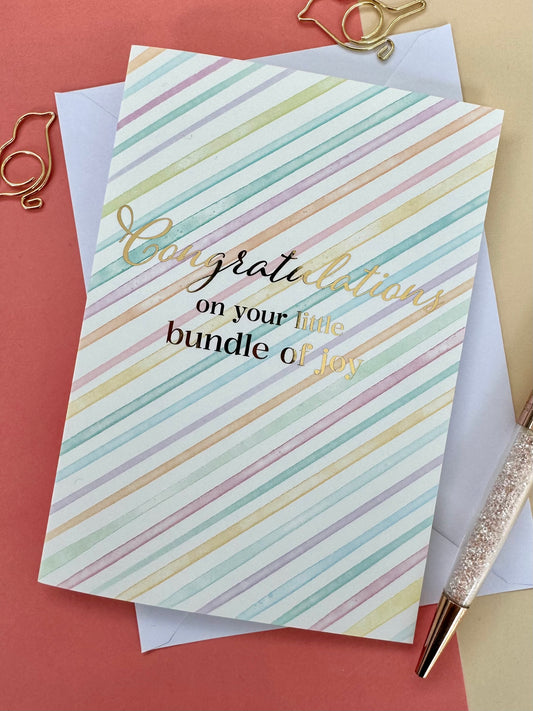 Congratulations
on your little
bundle of joy